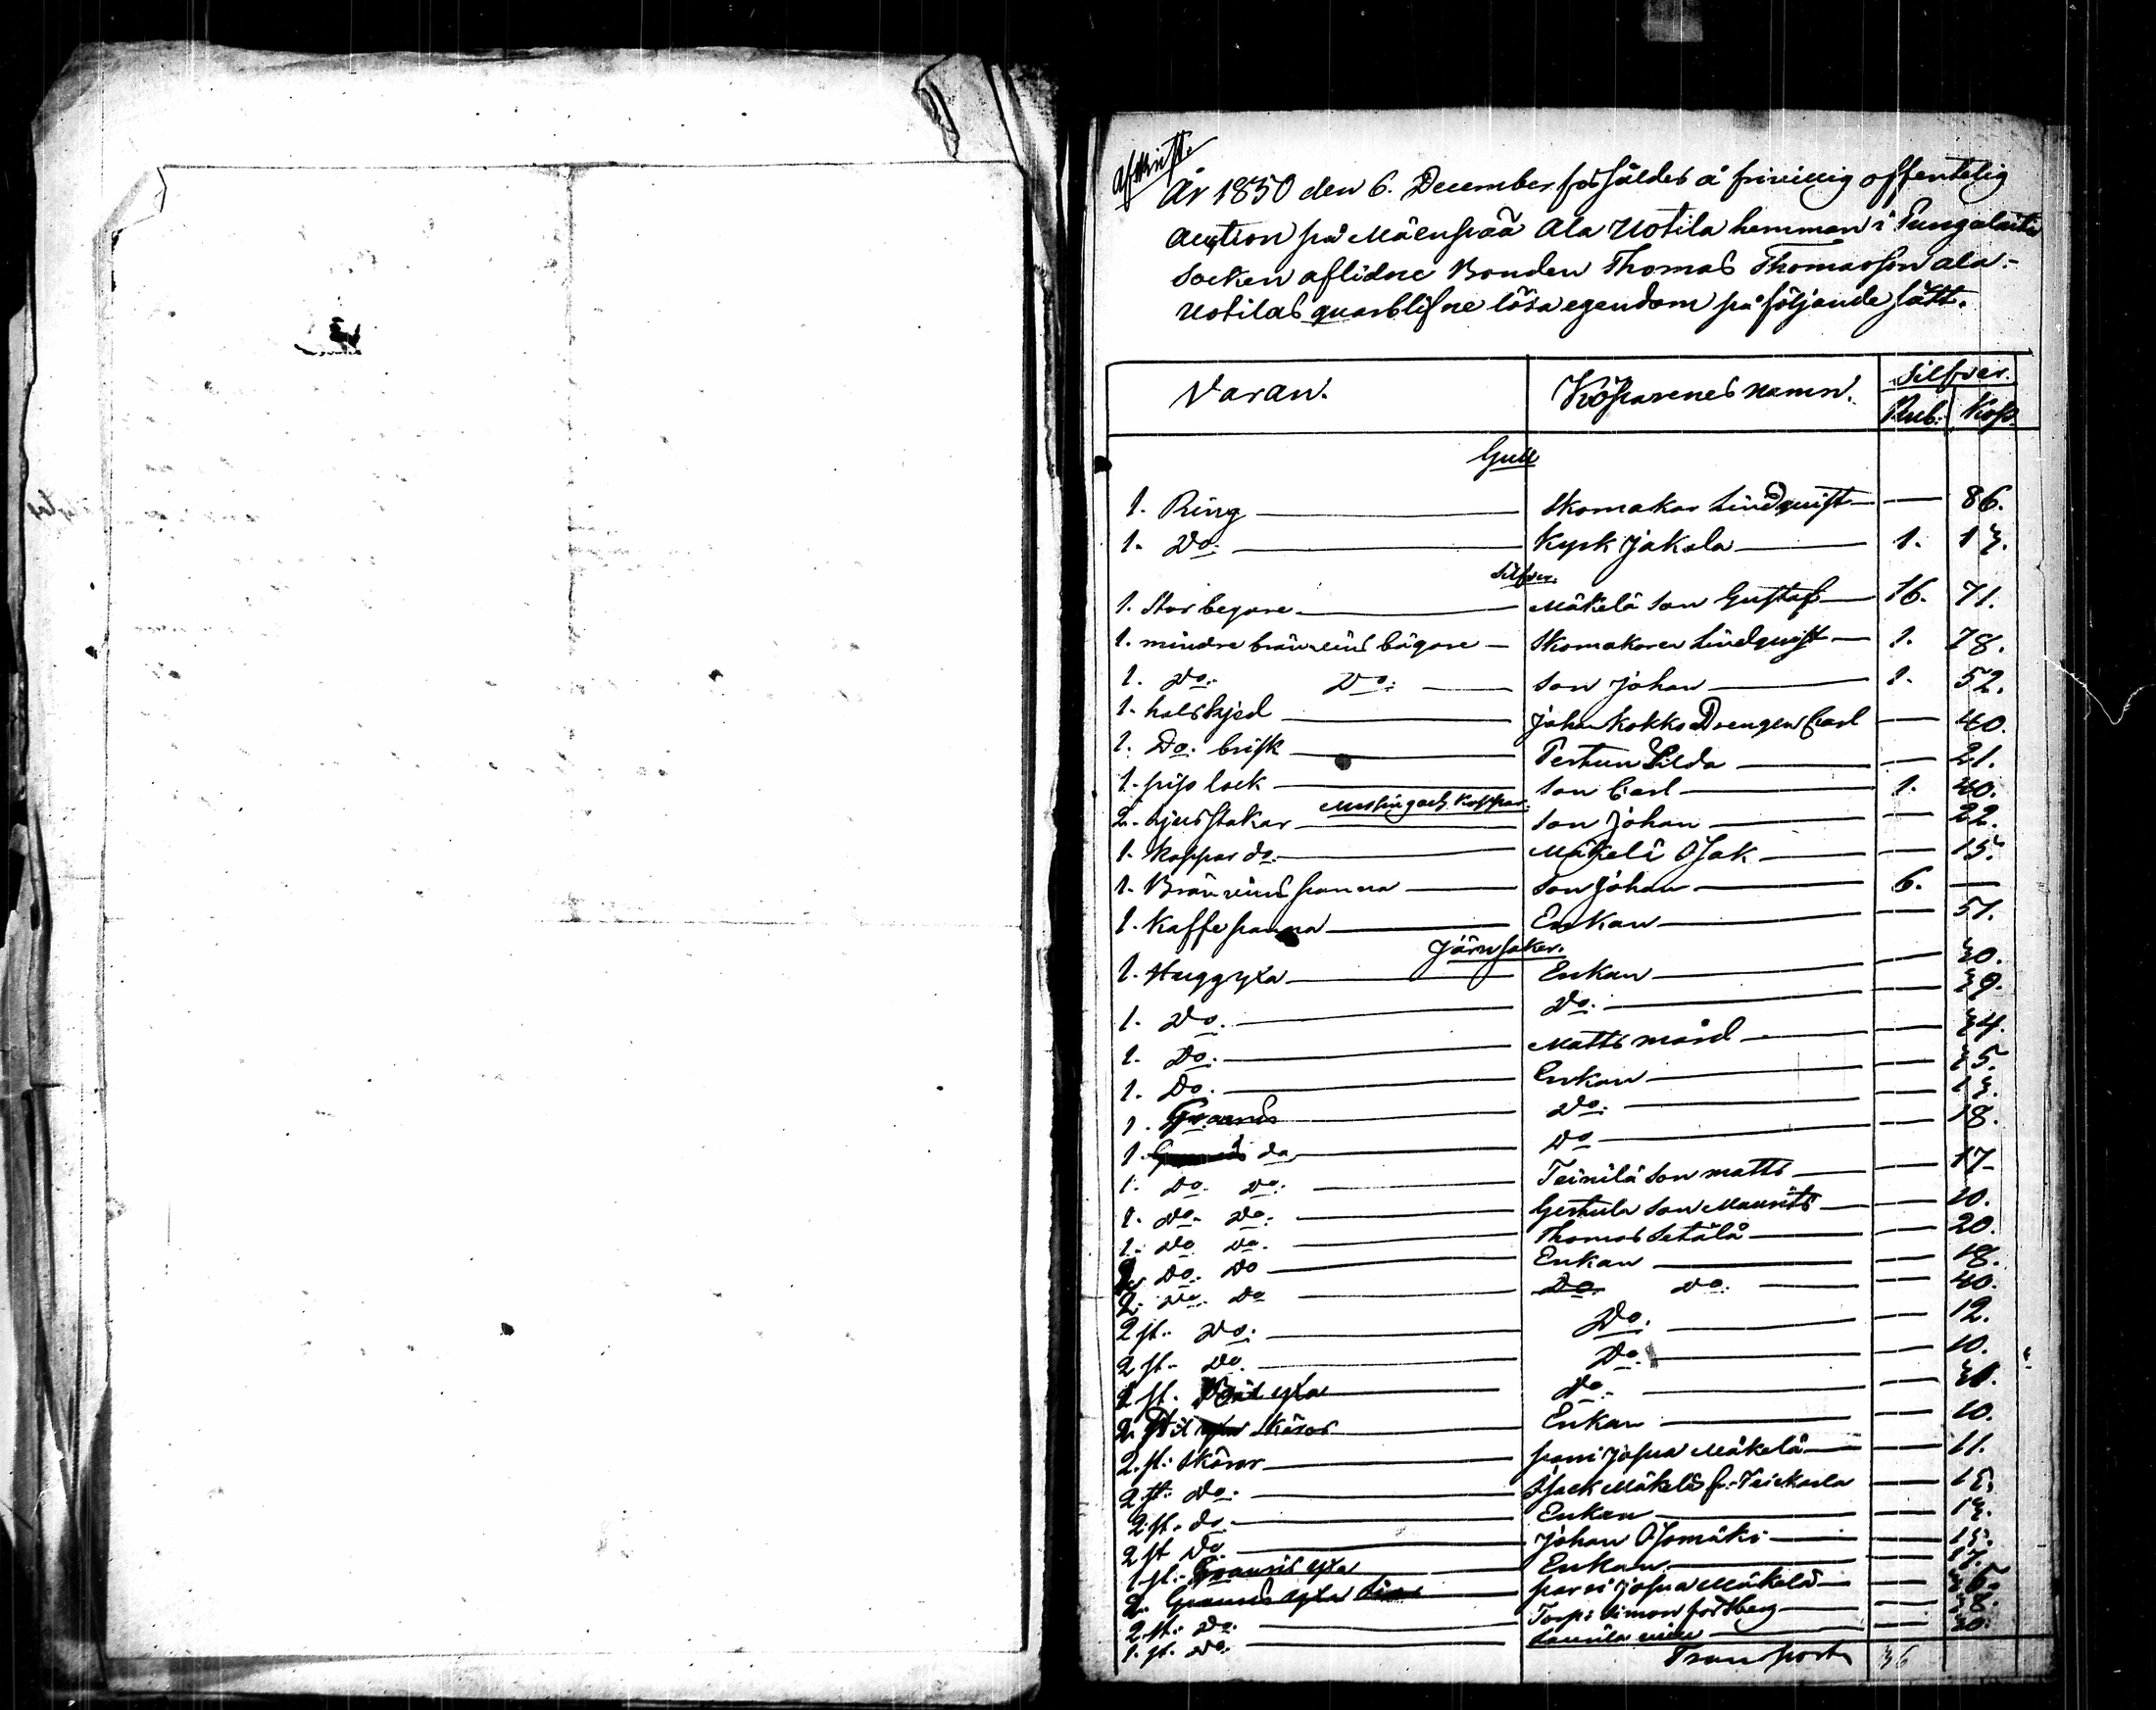 Afskrift.
År 1850 den 6. December försåldes å frivillig offentelig
auction på Mäenpää Ala Uotila hemman i Pungalaitio
Socken aflidne Bonden Thomas Thomasson ala-
Uotilas quarblifne lösa egendom på följande sätt.
Varan. Köparenes namn. Silfver.
Rub. Kop.
Gull
1. Ring — Skomakar Lindqvist — — 86.
1. Do: — Kyrk Jakola — 1. 13.
Silfver.
1. Stor begare — Mäkelä Son Gustaf — 16. 71.
1. mindre bränvins bägare — Skomakaren Lindqvist — 1. 78.
1. Do: Do: — Son Johan — 1. 52.
1. halskjed — Johan Kokko Drengen Carl — 40.
1. Do. brisk — Perttun — 21.
1. pip lock — Son Carl — 1. 40.
Messing och Koppar.
2. Ljusstakar — Son Johan — — 22.
1. Koppar do. — Mäkelä — 15.
1. Bränvins panna — Son Johan — 6. —
1. Kaffe panna — Enkan — — 51.
Järnsaker.
1. Huggyxa — Enkan — — 30.
1. Do. — Do. — — 39.
1. Do. — Matts — — 34.
1. Do. — Enkan — — 35.
1. — Do. — — 13.
1. do — Do — — 18.
1. Do. Do. — Teinilä Son Matts — — 17.
1. Do. Do. — Son Maurits — — 10.
1. Do Do. — Thomas Setälä — — 20.
Do. Do — Enkan — — 18.
2. Do. Do — Do. Do. — — 40.
2 st. Do. — Do. — — 12.
2 st. Do. — Do. — — 10.
st. yxa — Do. — — 30.
2. Skäror — Enkan — — 10.
2. st. Skäror — Josua Mäkelä — — 11.
2 st. Do. — Mäkelä — 15.
2. st. do. — Enkan — — 13.
2 st Do. — Johan Ojsmäki — — 15.
1 st. yxa — Enkan — — 17.
2. yxa — Josua Mäkelä — — 26.
2 st. Do. — Torp: Simon Forsberg — — 38.
1. st. Do. — — 30.
Transport 36